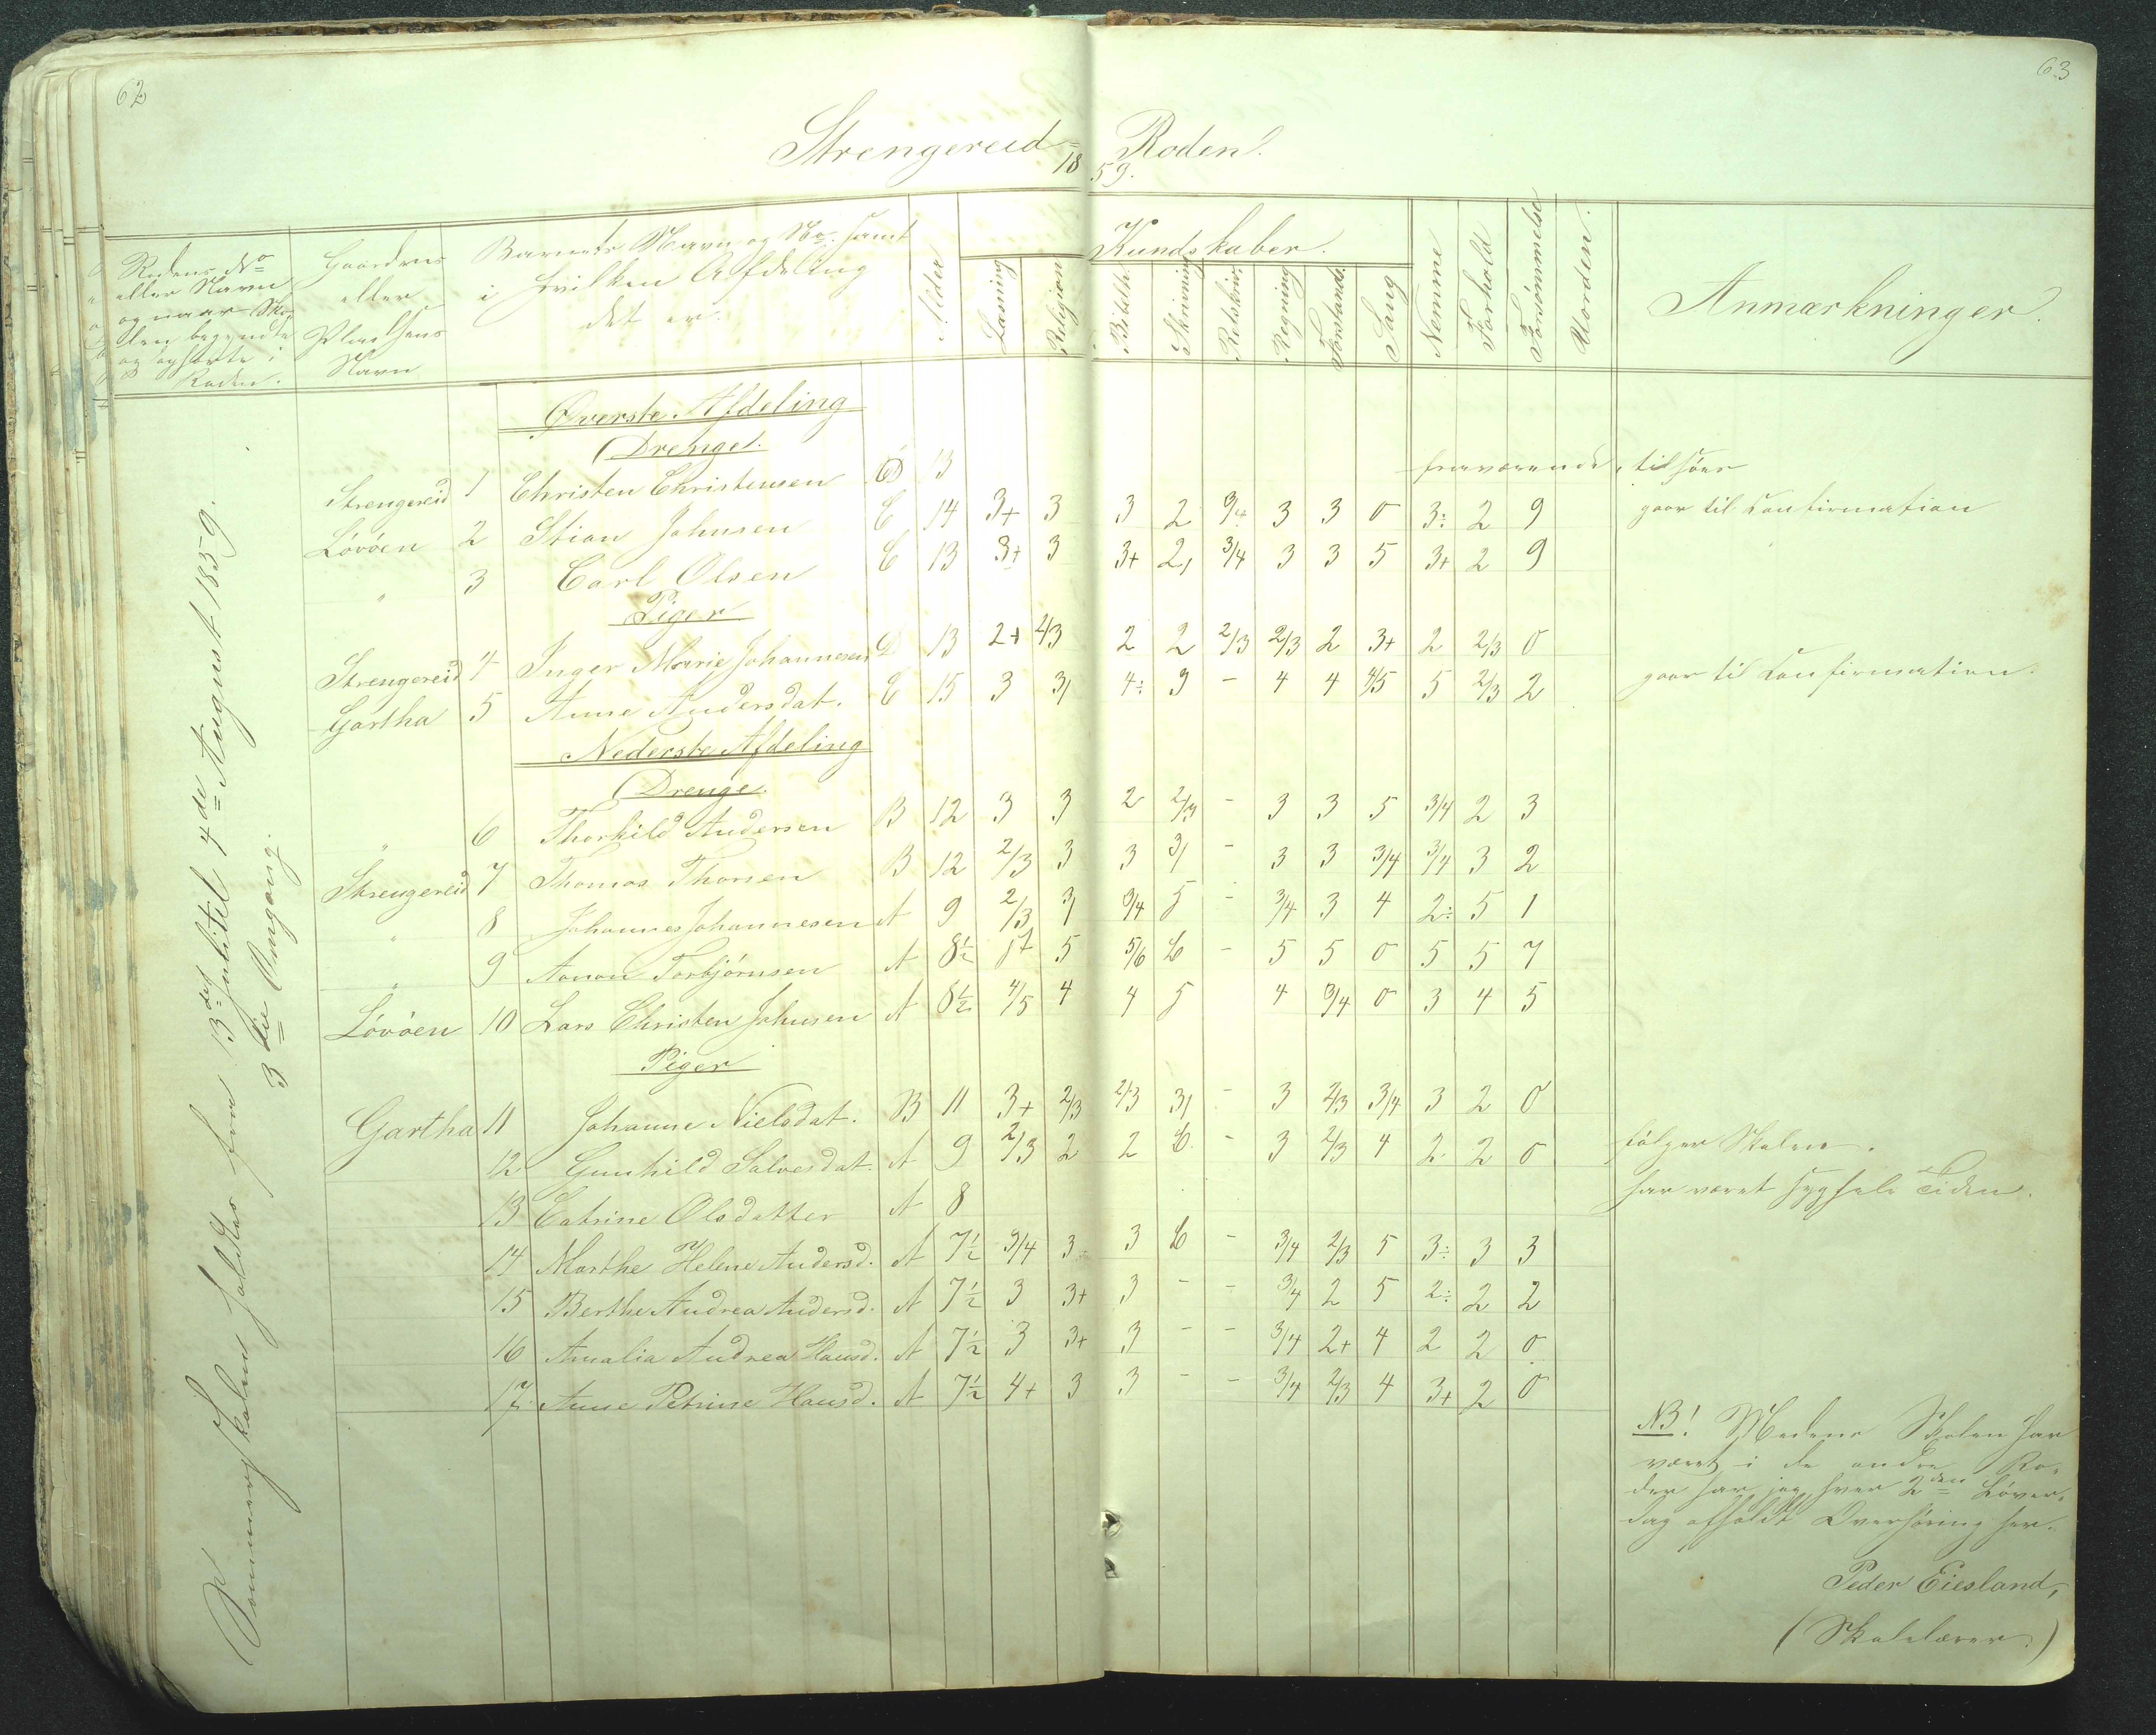 62
63
Strengereid=Roden.
1859.
Rodens No
eller Navn
og naar Sko-
len begyndte
og ophørte i
Roden.
Gaardens
eller
Pladsens
Navn
Barnets Navn og No. samt
i hvilken Afdeling
det er.
Alder
Kundskaber.
Læsning
Religion
Bibelh.
Skrivning
Retskriv.
Regning
Forstands.
Sang
Nemme
Forhold
Forsømmelse
Uorden.
Anmærkninger.
Sommerskolen holdtes fra 13de Juli til 4de August 1859.
3die Omgang.
Øverste Afdeling
Drenge.
Strengereid 1 Christen Christensen D 13 fraværende, tilsøes
Løvøen 2 Stian Johnsen C 14 3+ 3 3 2 3/4 3 3 0 3÷ 2 9 gaar til Confirmation
" 3 Carl Olsen C 13 3+ 3 3+ 2, 3/4 3 3 5 3+ 2 9
Piger
Strengereid 4 Inger Marie Johannesen D 13 2+ 2/3 2 2 2/3 2/3 2 3+ 2 2/3 0
Gartha 5 Anne Andersdat. C 15 3 3/ 4÷ 3 - 4 4 4/5 5 2/3 2 gaar til Confirmation.
Nederste Afdeling
Drenge.
" 6 Thorkild Andersen B 12 3 3 2 2/3 - 3 3 5 3/4 2 3
Strengereid 7 Thomas Thorsen B 12 2/3 3 3 3/ - 3 3 3/4 3/4 3 2
" 8 Johannes Johannesen A 9 2/3 3/ 3/4 5 - 3/4 3 4 2÷ 5 1
" 9 Aanon Torbjørnsen A 8½ 5+ 5 5/6 6 - 5 5 0 5 5 7
Løvøen 10 Lars Christen Johnsen A 8½ 4/5 4 4 5 4 3/4 0 3 4 5
Piger
Gartha 11 Johanne Nielsdat. B 11 3+ 2/3 2/3 3/ - 3 2/3 3/4 3 2 0
12 Gunhild Salvesdat. A 9 2/3 2 2 6 - 3 2/3 4 2 2 0 følger Skolen.
13 Catrine Olsdatter A 8 har været syg hele Tiden.
14 Marthe Helene Andersd. A 7½ 3/4 3÷ 3 6 - 3/4 2/3 5 3÷ 3 3
15 Berthe Andrea Andersd. A 7½ 3 3+ 3 - - 3/4 2 5 2÷ 2 2
16 Amalia Andrea Hansd. A 7½ 3 3+ 3 - - 3/4 2+ 4 2 2 0
17 Anne Petrine Hansd. A 7½ 4+ 3 3 - - 3/4 2/3 4 3+ 2 0
NB! Medens Skolen har
været i de andre Ro-
der har jeg hver 2den Løver-
dag afholdt Overhøring her.
Peder Eiesland,
(Skolelærer.)